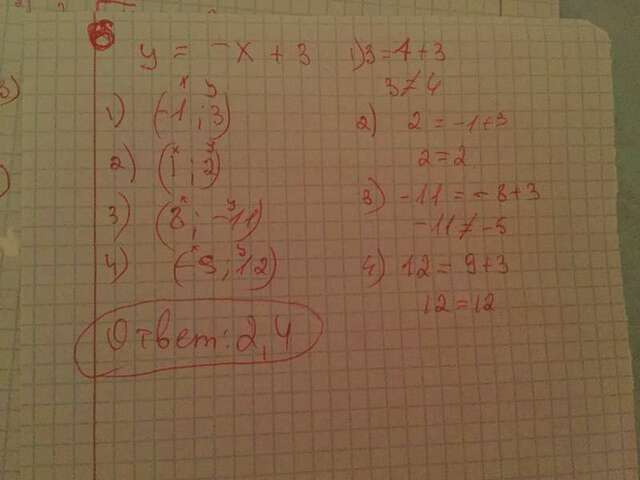 y = -x + 3
1) (-1 ; 3)
2) (1 ; 2)
3) (8 ; -11)
4) (-9 ; 12)
Ответ: 2, 4
1) 3 = 1 + 3
3 ≠ 4
2) 2 = -1 + 3
2 = 2
3) -11 = -8 + 3
-11 ≠ -5
4) 12 = 9 + 3
12 = 12